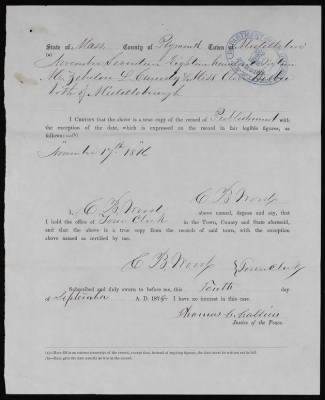 State of Mass. County of Plymouth Town of Middleboro
(a)
November Seventeen Eighteen hundred
Mr Zebulon L Canedy & Miss
both of Middleborough
I CERTIFY that the above is a true copy of the record of Publishment with
the exception of the date, which is expressed on the record in fair legible figures, as
follows:—(b)
"November 17th 1816"
C B Wood
I, C B Wood above named, depose and say, that
I hold the office of Town Clerk in the Town, County and State aforesaid,
and that the above is a true copy from the records of said town, with the exception
above named as certified by me.
C B Wood } Town Clerk
Subscribed and duly sworn to before me, this Tenth day
of September A. D. 187 I have no interest in this case.
Thomas C. Collins
Justice of the Peace.